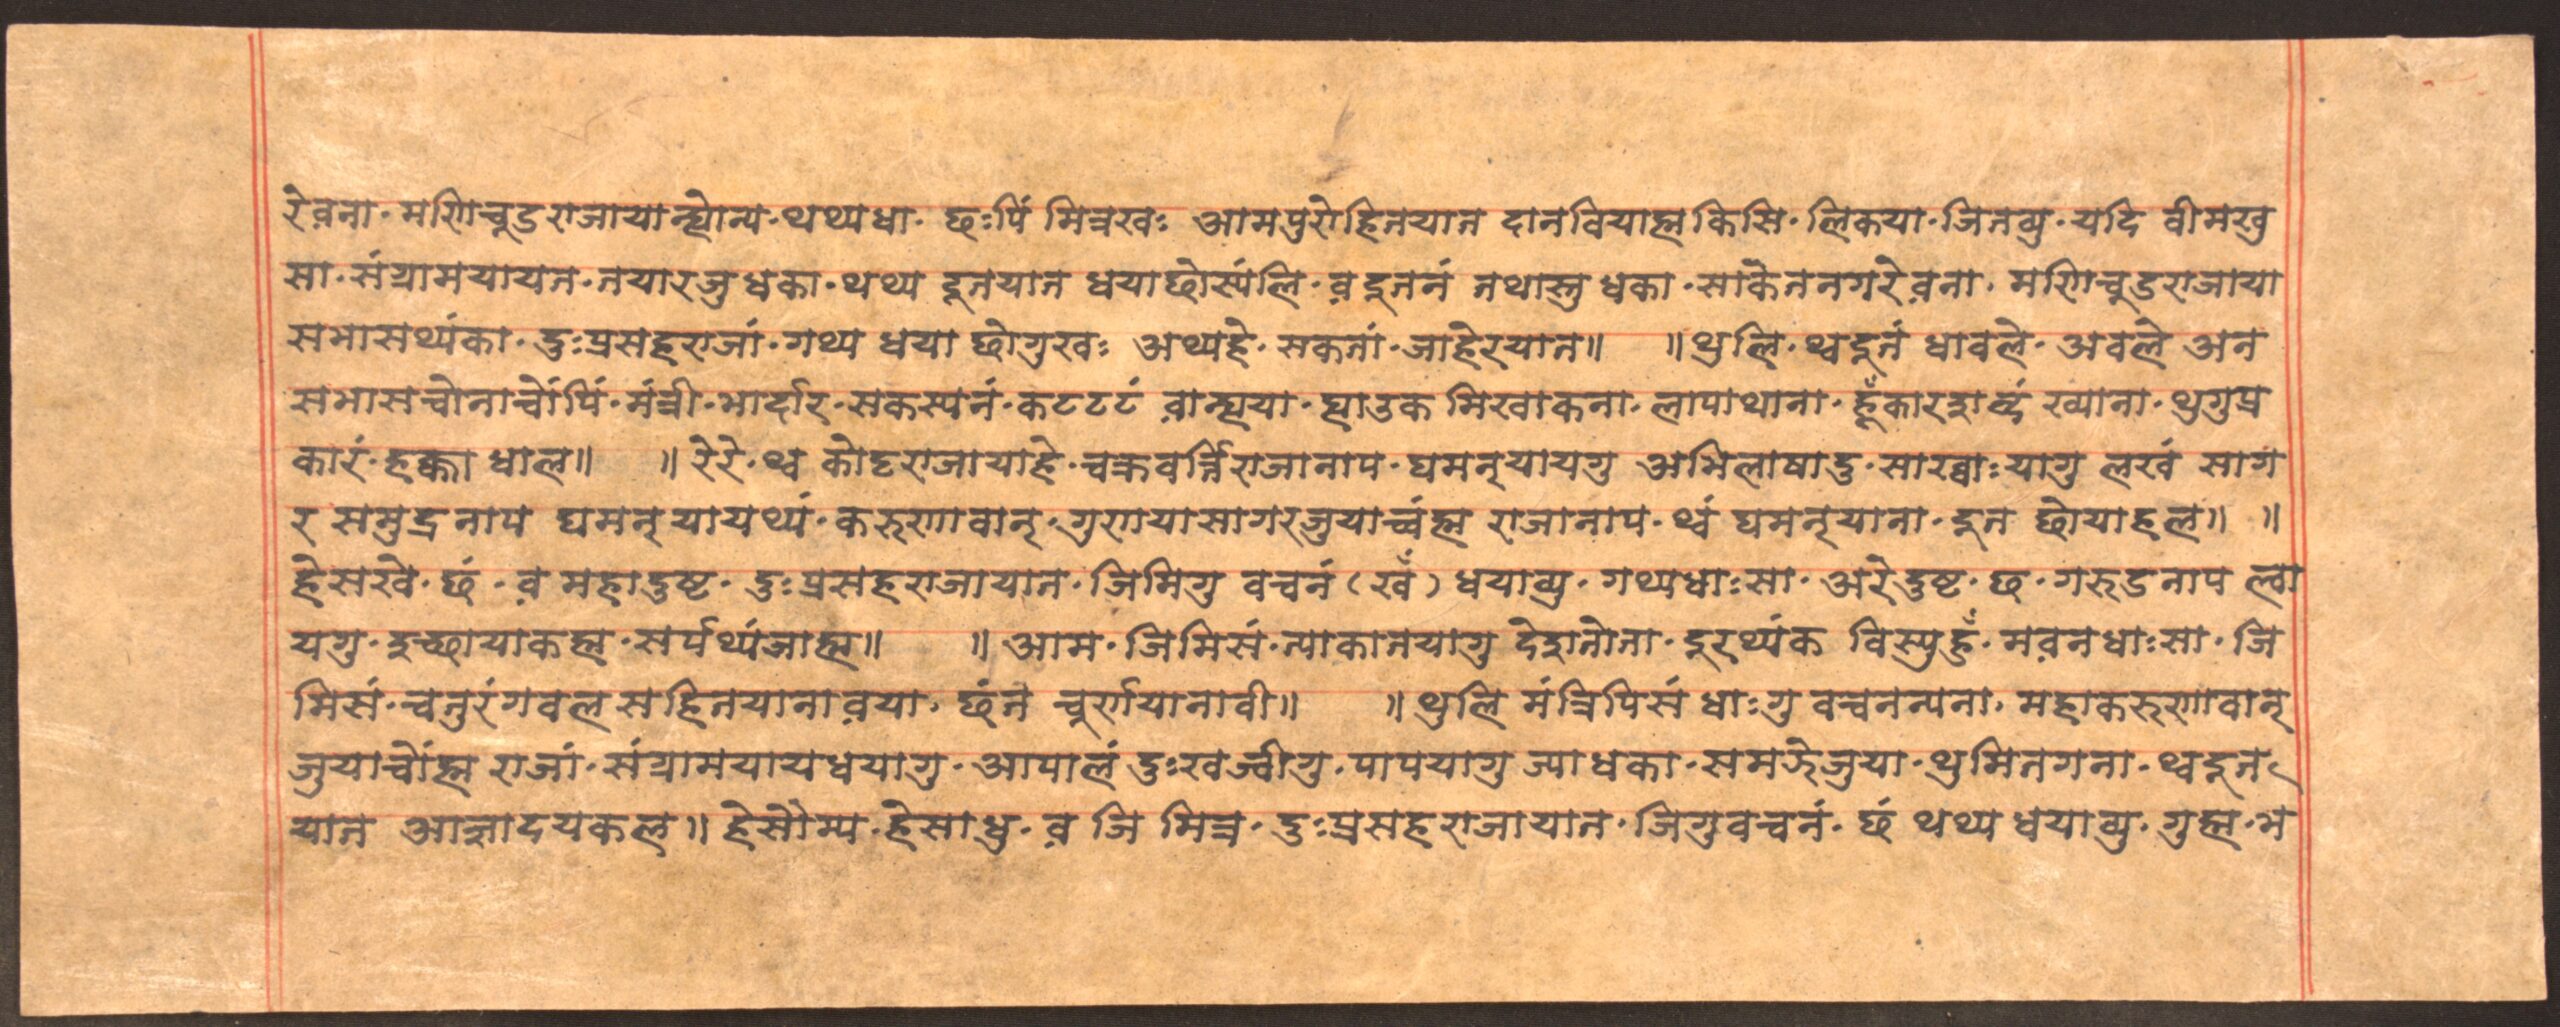 रे व़ना॰ मणिचूड राजायान्ह्योन्य॰ थथ्यधा॰ छःपिं मित्रखः आमपुरोहितयात दानवियाह्म किसि॰ लिकया॰ जितब्यु॰ यदि वीमखु
सा॰ संग्रामयायत॰ तयारजु धका॰ थथ्य दूतयात धयाछोस्यंलि॰ व़दूतनं तथास्तु धका॰ साकेतनगरे व़ना॰ मणिचूड राजाया
सभासथ्यंका॰ दुःप्रसहराजां॰ गथ्य धया छोगुखः अथ्यहे॰ सकतां॰ जाहेरयात॥ ॥ थुलि॰ थ्वदूतं धावले॰ अवले अन
सभासच्वोनाच्वोंपिं॰ मंत्री॰ भार्दार॰ सकस्यनं॰ कटटटं व़ान्ह्यया॰ ह्याउक मिखाकना॰ लापाथाना॰ हूँकारशब्दं ख्याना॰ थुगुप्र
कारं॰ हक्का धाल॥ ॥ रेरे॰ थ्व कोट्टराजायाहे॰ चक्रवर्त्तिराजानाप॰ घमन्‌यायगु अभिलाषादु॰ साख्वाःयागु लखं सागं
र समुद्रनाप घमन्‌ यायथ्यं॰ करुणावान्‌॰ गुणयासागरजुयाच्वंह्म राजानाप॰ थ्वं घमन्‌याना॰ दूत छोयाहल॥ ॥
हेसखे॰ छं॰ व़ महादुष्ट॰ दुःप्रसहराजायात॰ जिमिगु वचनं (खँ) धयाब्यु॰ गथ्यधाःसा॰ अरेदुष्ट॰ छ॰ गरुडनाप ल्वा
यगु॰ इच्छायाकह्म॰ सर्पथ्यंजाह्म॥ ॥ आम॰ जिमिसं॰ त्याकातयागु देशतोता॰ दूरथ्यंक विस्युहुँ॰ मव़नधाःसा॰ जि
मिसं॰ चतुरंगवल सहितयानाव़या॰ छंत चूर्णयानावी॥ ॥ थुलि मंत्रिपिसं धाःगु वचनन्यना॰ महाकरुणावान्‌
जुयाच्वोंह्म राजां॰ संग्रामयायधयागु॰ आपालं दुःखज्वीगु॰ पापयागु ज्याधका॰ समझेजुया॰ थुमितगना॰ थ्वदूत
यात आज्ञादयकल॥ हेसौम्य॰ हेसाधु॰ व़ जि मित्र॰ दुःप्रसहराजायात॰ जिगुवचनं॰ छं थथ्य धयाब्यु॰ गुह्म॰ भ